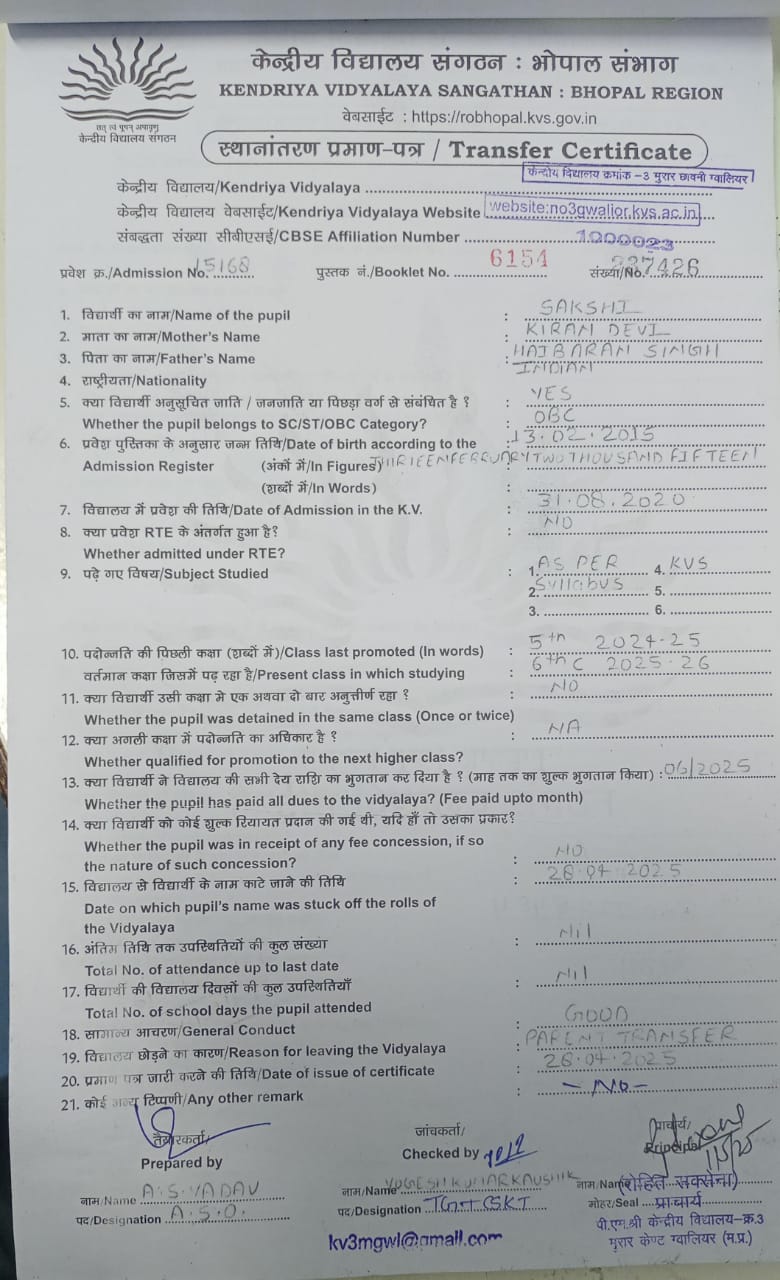 केन्द्रीय विद्यालय संगठन : भोपाल संभाग
KENDRIYA VIDYALAYA SANGATHAN : BHOPAL REGION
वेबसाईट : https://robhopal.kvs.gov.in
केन्द्रीय विद्यालय संगठन
स्थानांतरण प्रमाण-पत्र / Transfer Certificate
केन्द्रीय विद्यालय क्रमांक -3 मुरार छावनी ग्वालियर
केन्द्रीय विद्यालय/Kendriya Vidyalaya
केन्द्रीय विद्यालय वेबसाईट/Kendriya Vidyalaya Website website:no3gwalior.kvs.ac.in
संबद्धता संख्या सीबीएसई/CBSE Affiliation Number 1000023
प्रवेश क्र./Admission No. 15168 पुस्तक नं./Booklet No. 6154 संख्या/No. 237426
1. विद्यार्थी का नाम/Name of the pupil : SAKSHI
2. माता का नाम/Mother's Name : KIRAN DEVI
3. पिता का नाम/Father's Name : HAIBARAN SINGH
4. राष्ट्रीयता/Nationality INDIAN
5. क्या विद्यार्थी अनुसूचित जाति / जनजाति या पिछड़ा वर्ग से संबंधित है ? : YES
Whether the pupil belongs to SC/ST/OBC Category? : OBC
6. प्रवेश पुस्तिका के अनुसार जन्म तिथि/Date of birth according to the : 13.02.2015
Admission Register (अंकों में/In Figures) THIRTEEN FEBRUARY TWO THOUSAND FIFTEEN
(शब्दों में/In Words) :
7. विद्यालय में प्रवेश की तिथि/Date of Admission in the K.V. : 31.08.2020
8. क्या प्रवेश RTE के अंतर्गत हुआ है? : NO
Whether admitted under RTE?
9. पढ़े गए विषय/Subject Studied : 1. AS PER 4. KVS
2. Syllabus 5.
3. 6.
10. पदोन्नति की पिछली कक्षा (शब्दों में)/Class last promoted (In words) : 5th 2024-25
वर्तमान कक्षा जिसमें पढ़ रहा है/Present class in which studying : 6th C 2025-26
11. क्या विद्यार्थी उसी कक्षा मे एक अथवा दो बार अनुत्तीर्ण रहा ? : NO
Whether the pupil was detained in the same class (Once or twice)
12. क्या अगली कक्षा में पदोन्नति का अधिकार है ? : NA
Whether qualified for promotion to the next higher class?
13. क्या विद्यार्थी ने विद्यालय की सभी देय राशि का भुगतान कर दिया है ? (माह तक का शुल्क भुगतान किया) : 06/2025
Whether the pupil has paid all dues to the vidyalaya? (Fee paid upto month)
14. क्या विद्यार्थी को कोई शुल्क रियायत प्रदान की गई थी, यदि हाँ तो उसका प्रकार?
Whether the pupil was in receipt of any fee concession, if so
the nature of such concession? : NO
15. विद्यालय से विद्यार्थी के नाम काटे जाने की तिथि : 28.04.2025
Date on which pupil's name was stuck off the rolls of
the Vidyalaya
16. अंतिम तिथि तक उपस्थितियों की कुल संख्या : Nil
Total No. of attendance up to last date
17. विद्यार्थी की विद्यालय दिवसों की कुल उपस्थितियाँ : Nil
Total No. of school days the pupil attended
18. सामान्य आचरण/General Conduct : GOOD
19. विद्यालय छोड़ने का कारण/Reason for leaving the Vidyalaya : PARENT TRANSFER
20. प्रमाण पत्र जारी करने की तिथि/Date of issue of certificate : 28.04.2025
21. कोई अन्य टिप्पणी/Any other remark : - No -
तैयारकर्ता/ जांचकर्ता/ प्राचार्य/
Prepared by Checked by Principal
नाम/Name A.S. YADAV नाम/Name YOGESH KUMAR KAUSHIK नाम/Name (रोहित सक्सेना)
पद/Designation A.S.O. पद/Designation TGT SKT मोहर/Seal प्राचार्य
kv3mgwl@gmail.com
पी.एम.श्री केन्द्रीय विद्यालय-क्र.3
मुरार केण्ट ग्वालियर (म.प्र.)